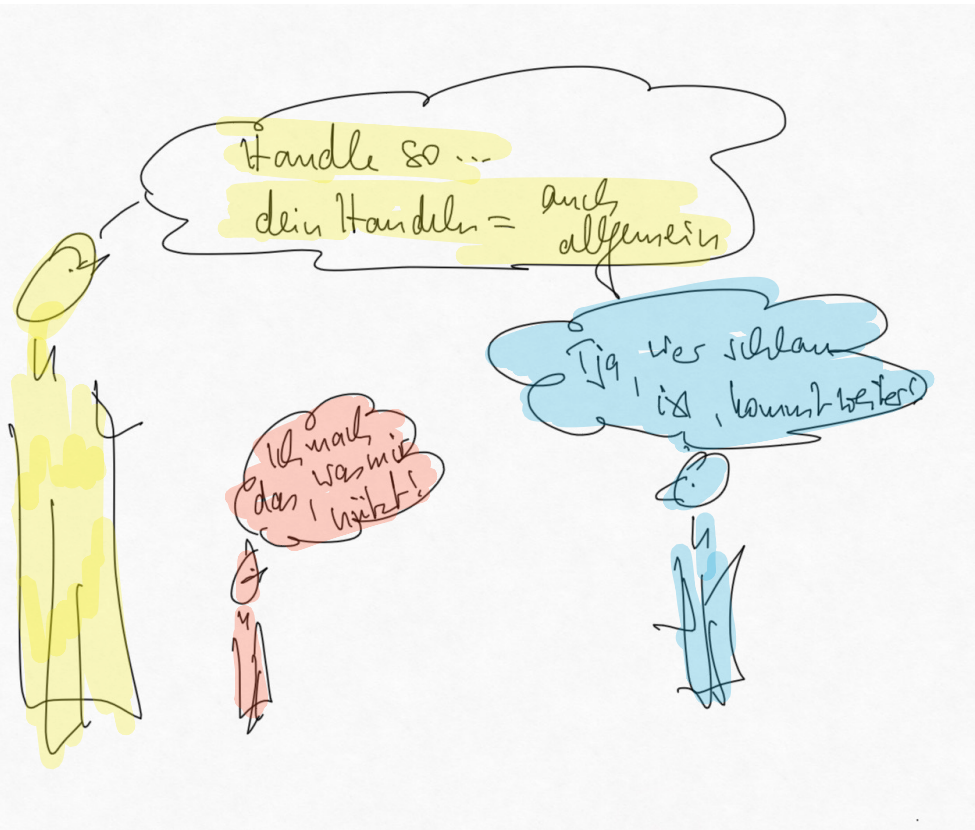 Handle so...
dein Handeln = auch
allgemein
Tja, wer schlau
ist, kommt weiter!
Ich mach
das, was mir
nützt!